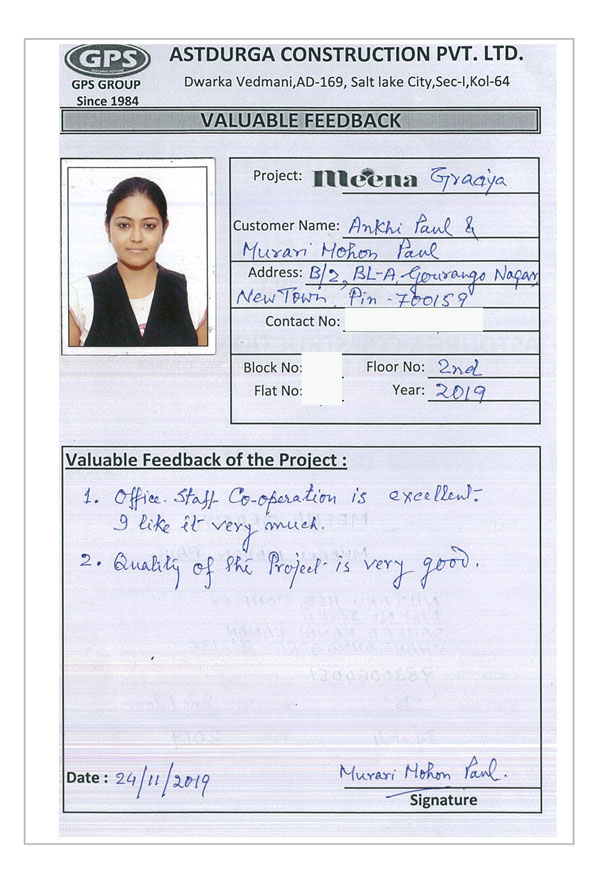 GPS
GPS GROUP
Since 1984
ASTDURGA CONSTRUCTION PVT. LTD.
Dwarka Vedmani,AD-169, Salt lake City,Sec-I,Kol-64
VALUABLE FEEDBACK
Project: Meena Graciya
Customer Name: Ankhi Paul &
Murari Mohon Paul
Address: B/2, BL-A, Gourango Nagar,
New Town, Pin - 700159
Contact No:
Block No: Floor No: 2nd
Flat No: Year: 2019
Valuable Feedback of the Project :
1. Office Staff Co-operation is excellent.
I like it very much.
2. Quality of the Project is very good.
Date : 24/11/2019
Murari Mohon Paul.
Signature